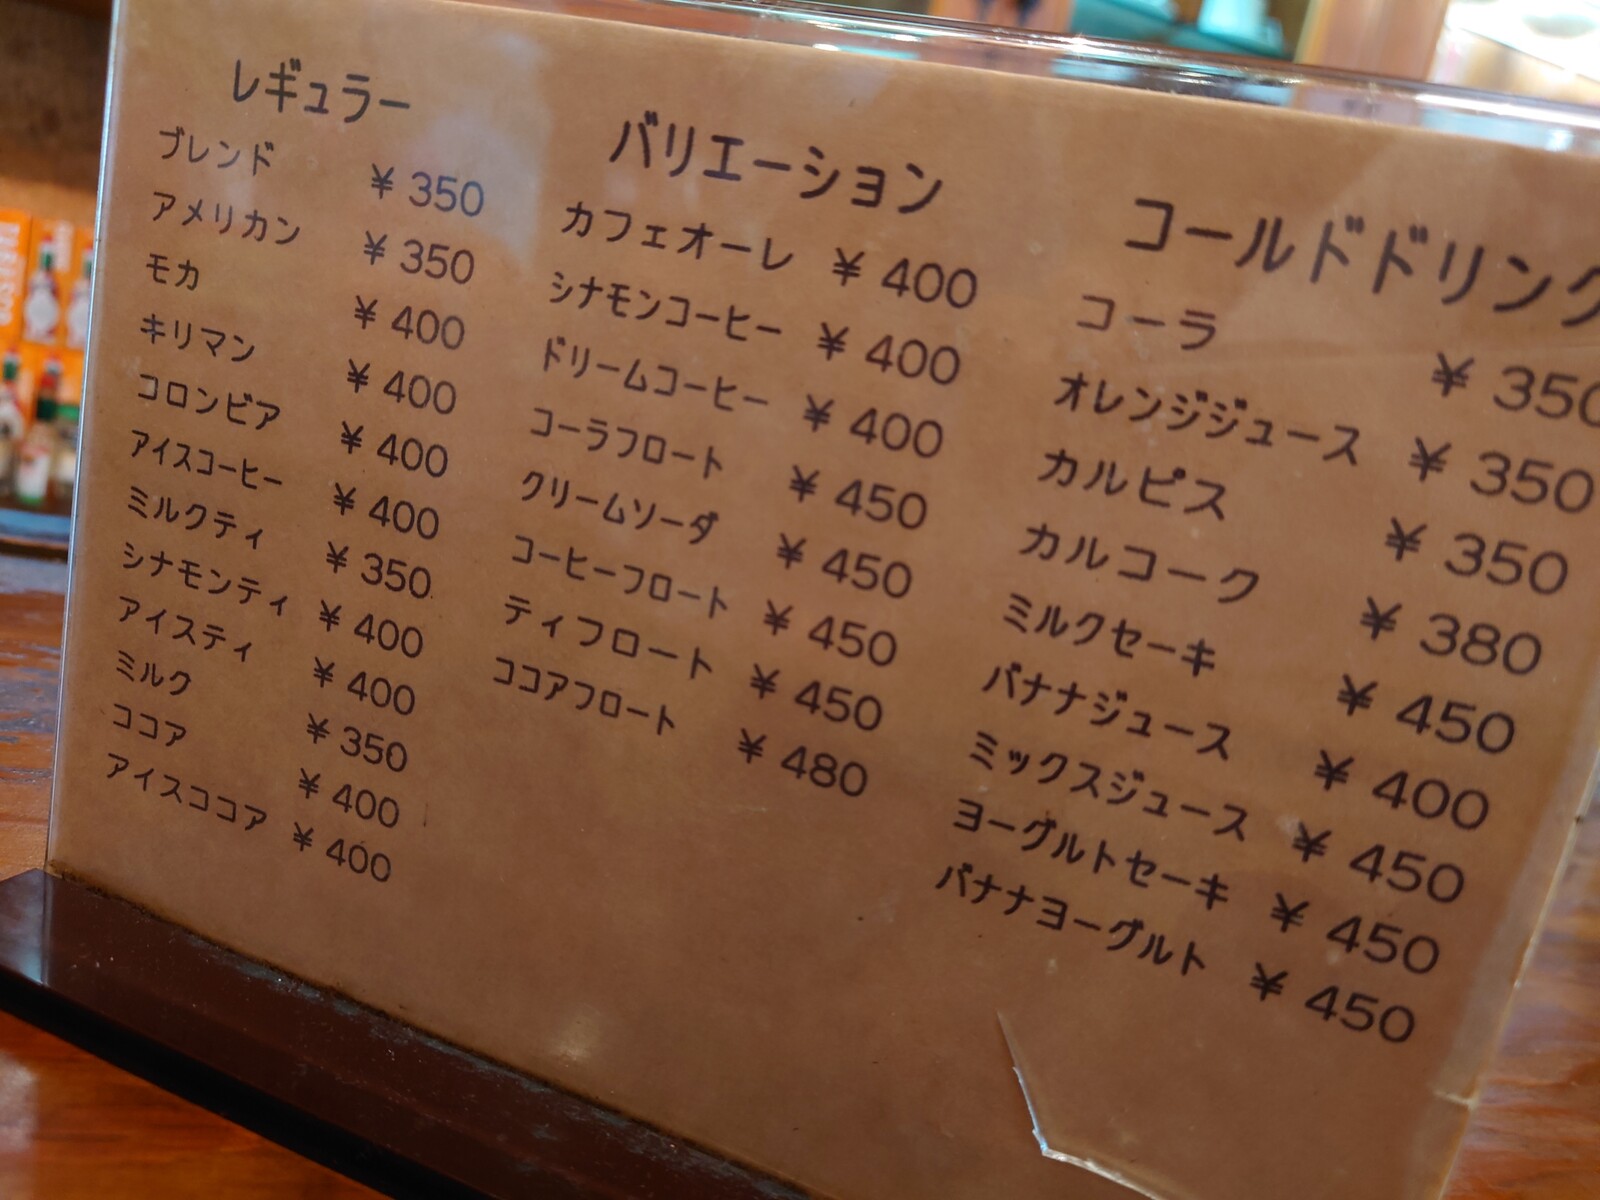 レギュラー
ブレンド ¥350
アメリカン ¥350
モカ ¥400
キリマン ¥400
コロンビア ¥400
アイスコーヒー ¥400
ミルクティ ¥350
シナモンティ ¥400
アイスティ ¥400
ミルク ¥350
ココア ¥400
アイスココア ¥400
バリエーション
カフェオーレ ¥400
シナモンコーヒー ¥400
ドリームコーヒー ¥400
コーラフロート ¥450
クリームソーダ ¥450
コーヒーフロート ¥450
ティフロート ¥450
ココアフロート ¥480
コールドドリンク
コーラ ¥350
オレンジジュース ¥350
カルピス ¥350
カルコーク ¥380
ミルクセーキ ¥450
バナナジュース ¥400
ミックスジュース ¥450
ヨーグルトセーキ ¥450
バナナヨーグルト ¥450